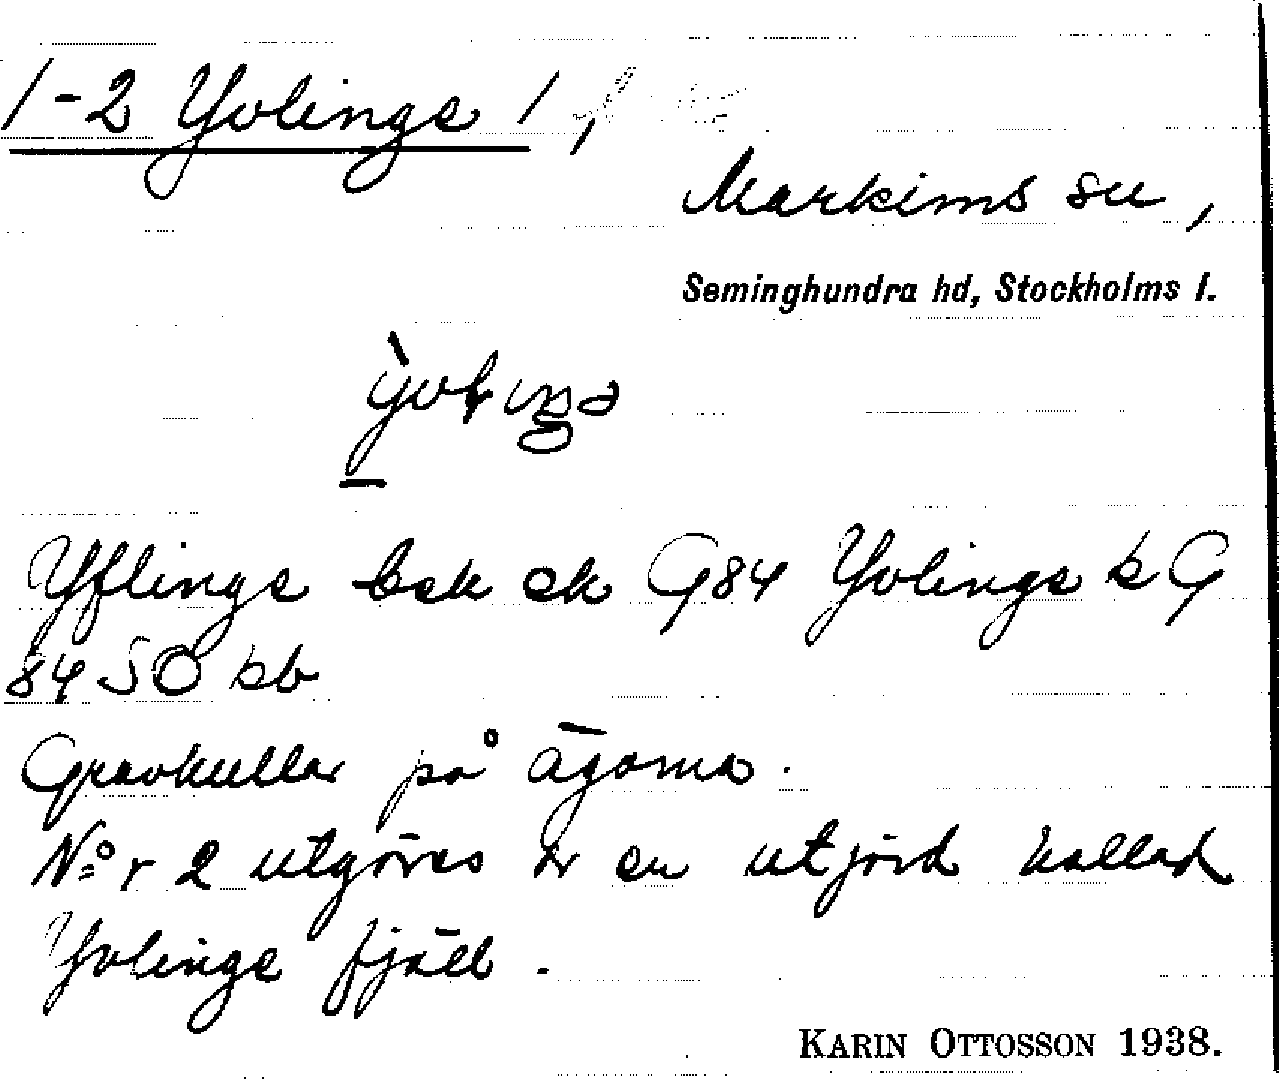 1-2 Yvlinge 1,
Markims sn,
Seminghundra hd, Stockholms l.
Yflinge esk ek G84 Yvlinge k G
84 SO kb
Gravkullar på ägorna.
N:o r 2 utgöres av en utjord kallad
Yvlinge fjäll.
KARIN OTTOSSON 1938.